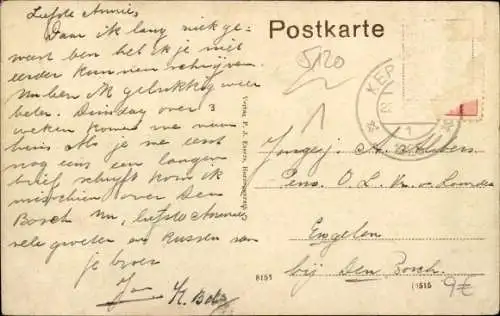 Liefste Annie,
Daar ik lang ziek ge=
weest ben heb ik je niet
eerder kunnen schrijven.
Nu ben ik gelukkig weer
beter. Dinsdag over 3
weken komen we naar
huis. Als je me eerst
nog eens een langen
brief schrijft kom ik
misschien over Den
Bosch. Nu, liefste Annie
vele groeten en kussen van
je broer
Jan
Postkarte
5120
KEP
1
Verlag P. J.
Jongej. A. Albers
Pens. O. L. Vr. v. Lourdes
Engelen
bij Den Bosch.
8151
1515
9€